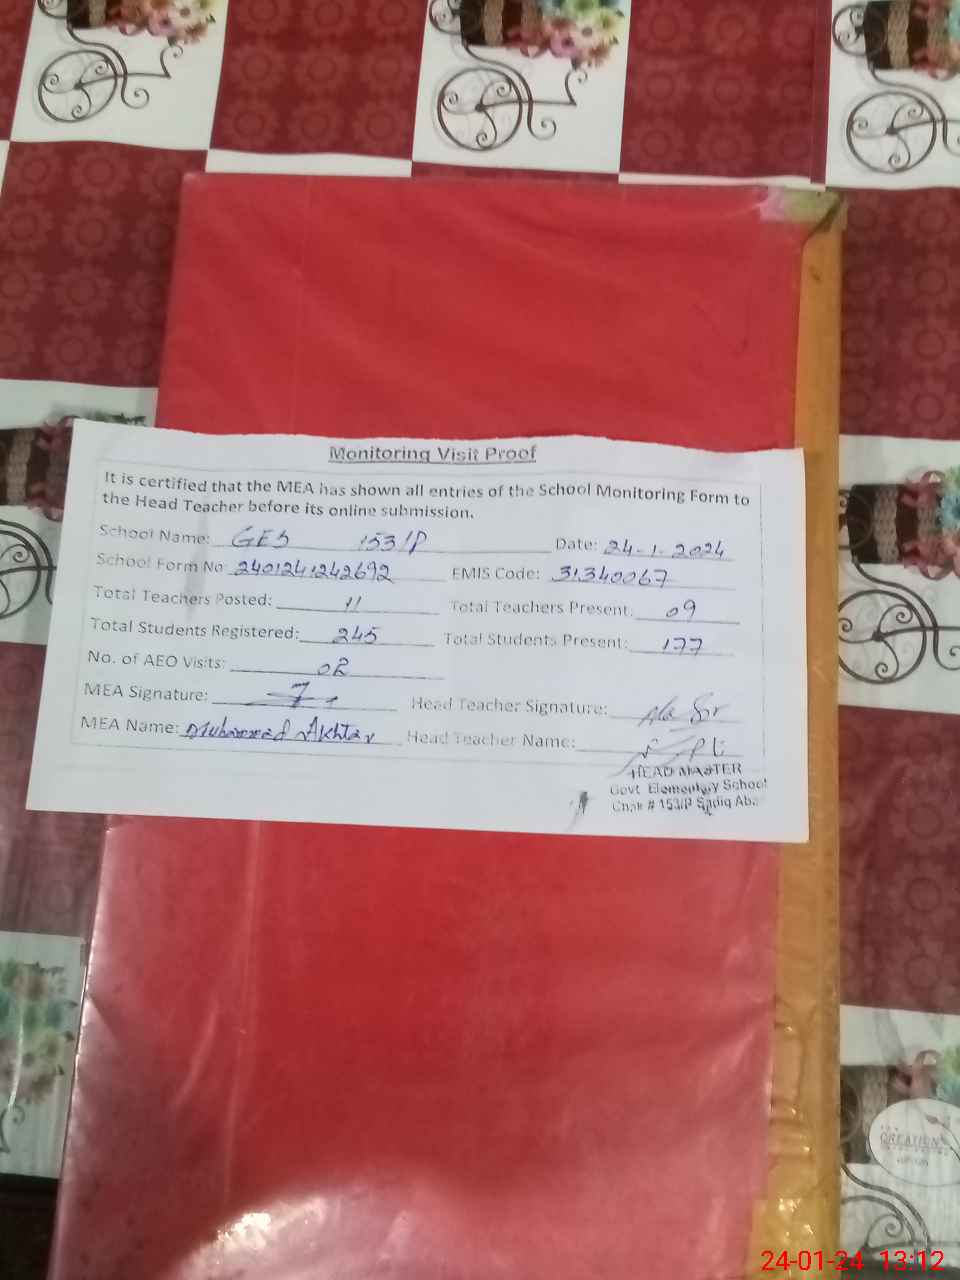 Monitoring Visit Proof
It is certified that the MEA has shown all entries of the School Monitoring Form to
the Head Teacher before its online submission.
School Name: GES 153/P Date: 24-1-2024
School Form No 2401241242692 EMIS Code: 31340067
Total Teachers Posted: 11 Total Teachers Present: 09
Total Students Registered: 245 Total Students Present: 177
No. of AEO Visits: 02
MEA Signature: Head Teacher Signature:
MEA Name: Muhammad Akhtar Head Teacher Name:
HEAD MASTER
Govt. Elementary School
Chak # 153/P Sadiq Aba
CREATION
24-01-24 13:12